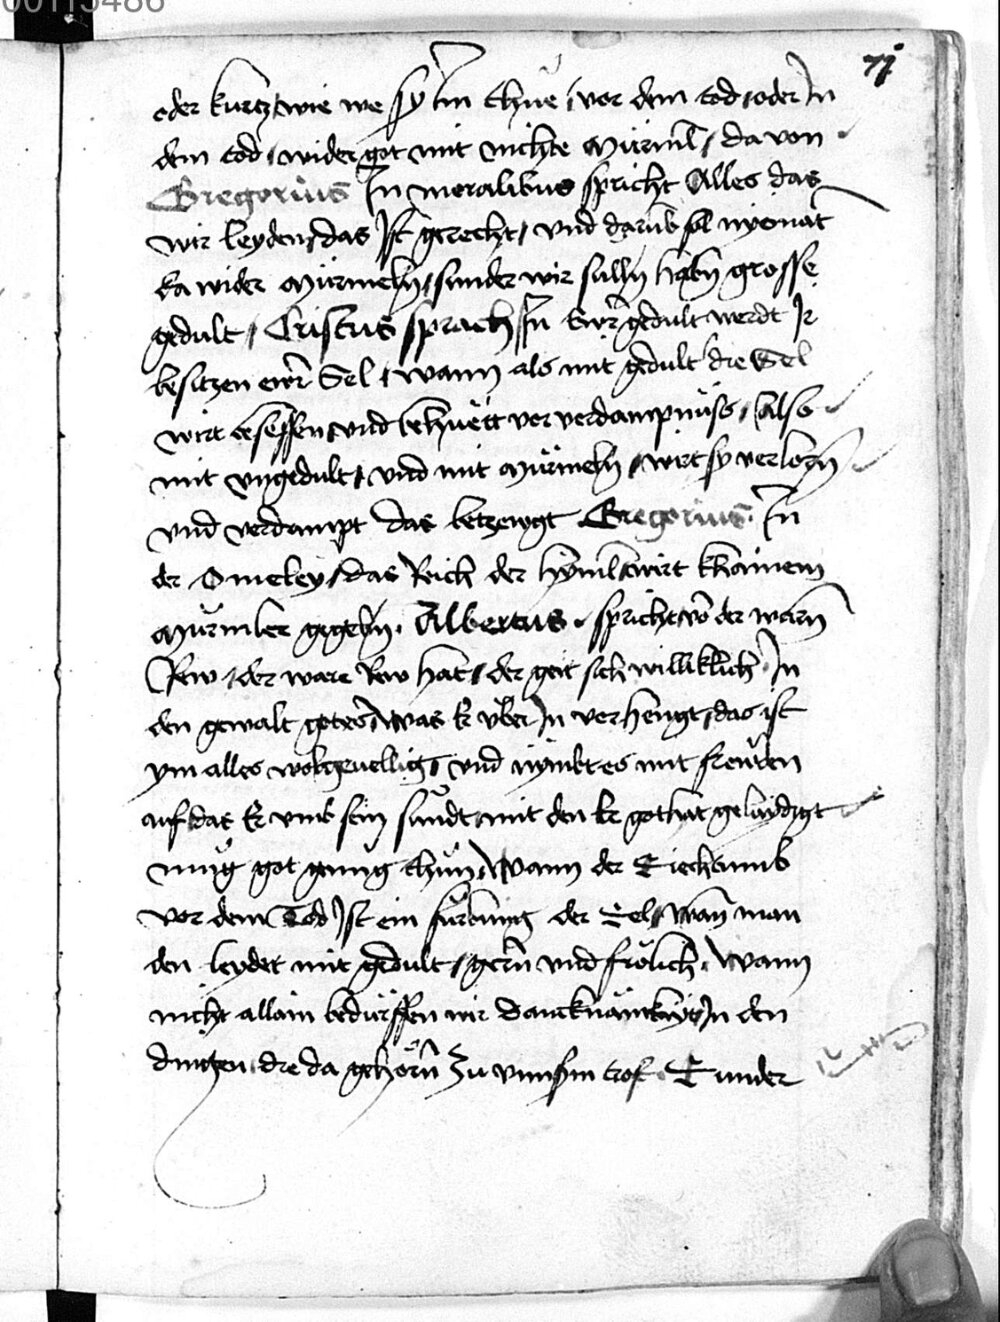 00115486
71
oder kurtz / wie we sy Im thue / vor dem tod / oder In
dem tod / wider got mit nichte Murml / da von
Gregorius In moralibus spricht Alles das
wir leyden / das Ist gerecht / vnd darub sol nyemat
da wider Murmeln / sunder wir sulln habn grosse
gedult / Cristus sprach In Ewr gedult werdt Ir
besitzen ewr Sel / wann als mit gedult die Sel
wirt besessen vnd behuett vor verdampnuss / also
mit vngedult / vnd mit Murmeln / wirt sy verlorn
vnd verdampt das betzewgt Gregorius In
der Omeley / das Reich der hyml wirt khainem
Murmler gegebn. Albertus. spricht vo der warn
Rew / der ware Rew hat / der geit sich williklich In
den gewalt gotes / Was Er vber In verhengt / das ist
ym alles wolgeuellig / vnd nymbt es mit freuden
auf das Er vmb sein sundt / mit den Er got hat gelaydigt
mug got genug thun / Wann der Siechtumb
vor dem Tod Ist ein furbung der Sel / wan man
den leydet mit gedult / gern vnd frolich. Wann
nicht allain bedurffen wir danknamkayt In den
dingen die da gehorn Zu vnnserm trost. Sunder